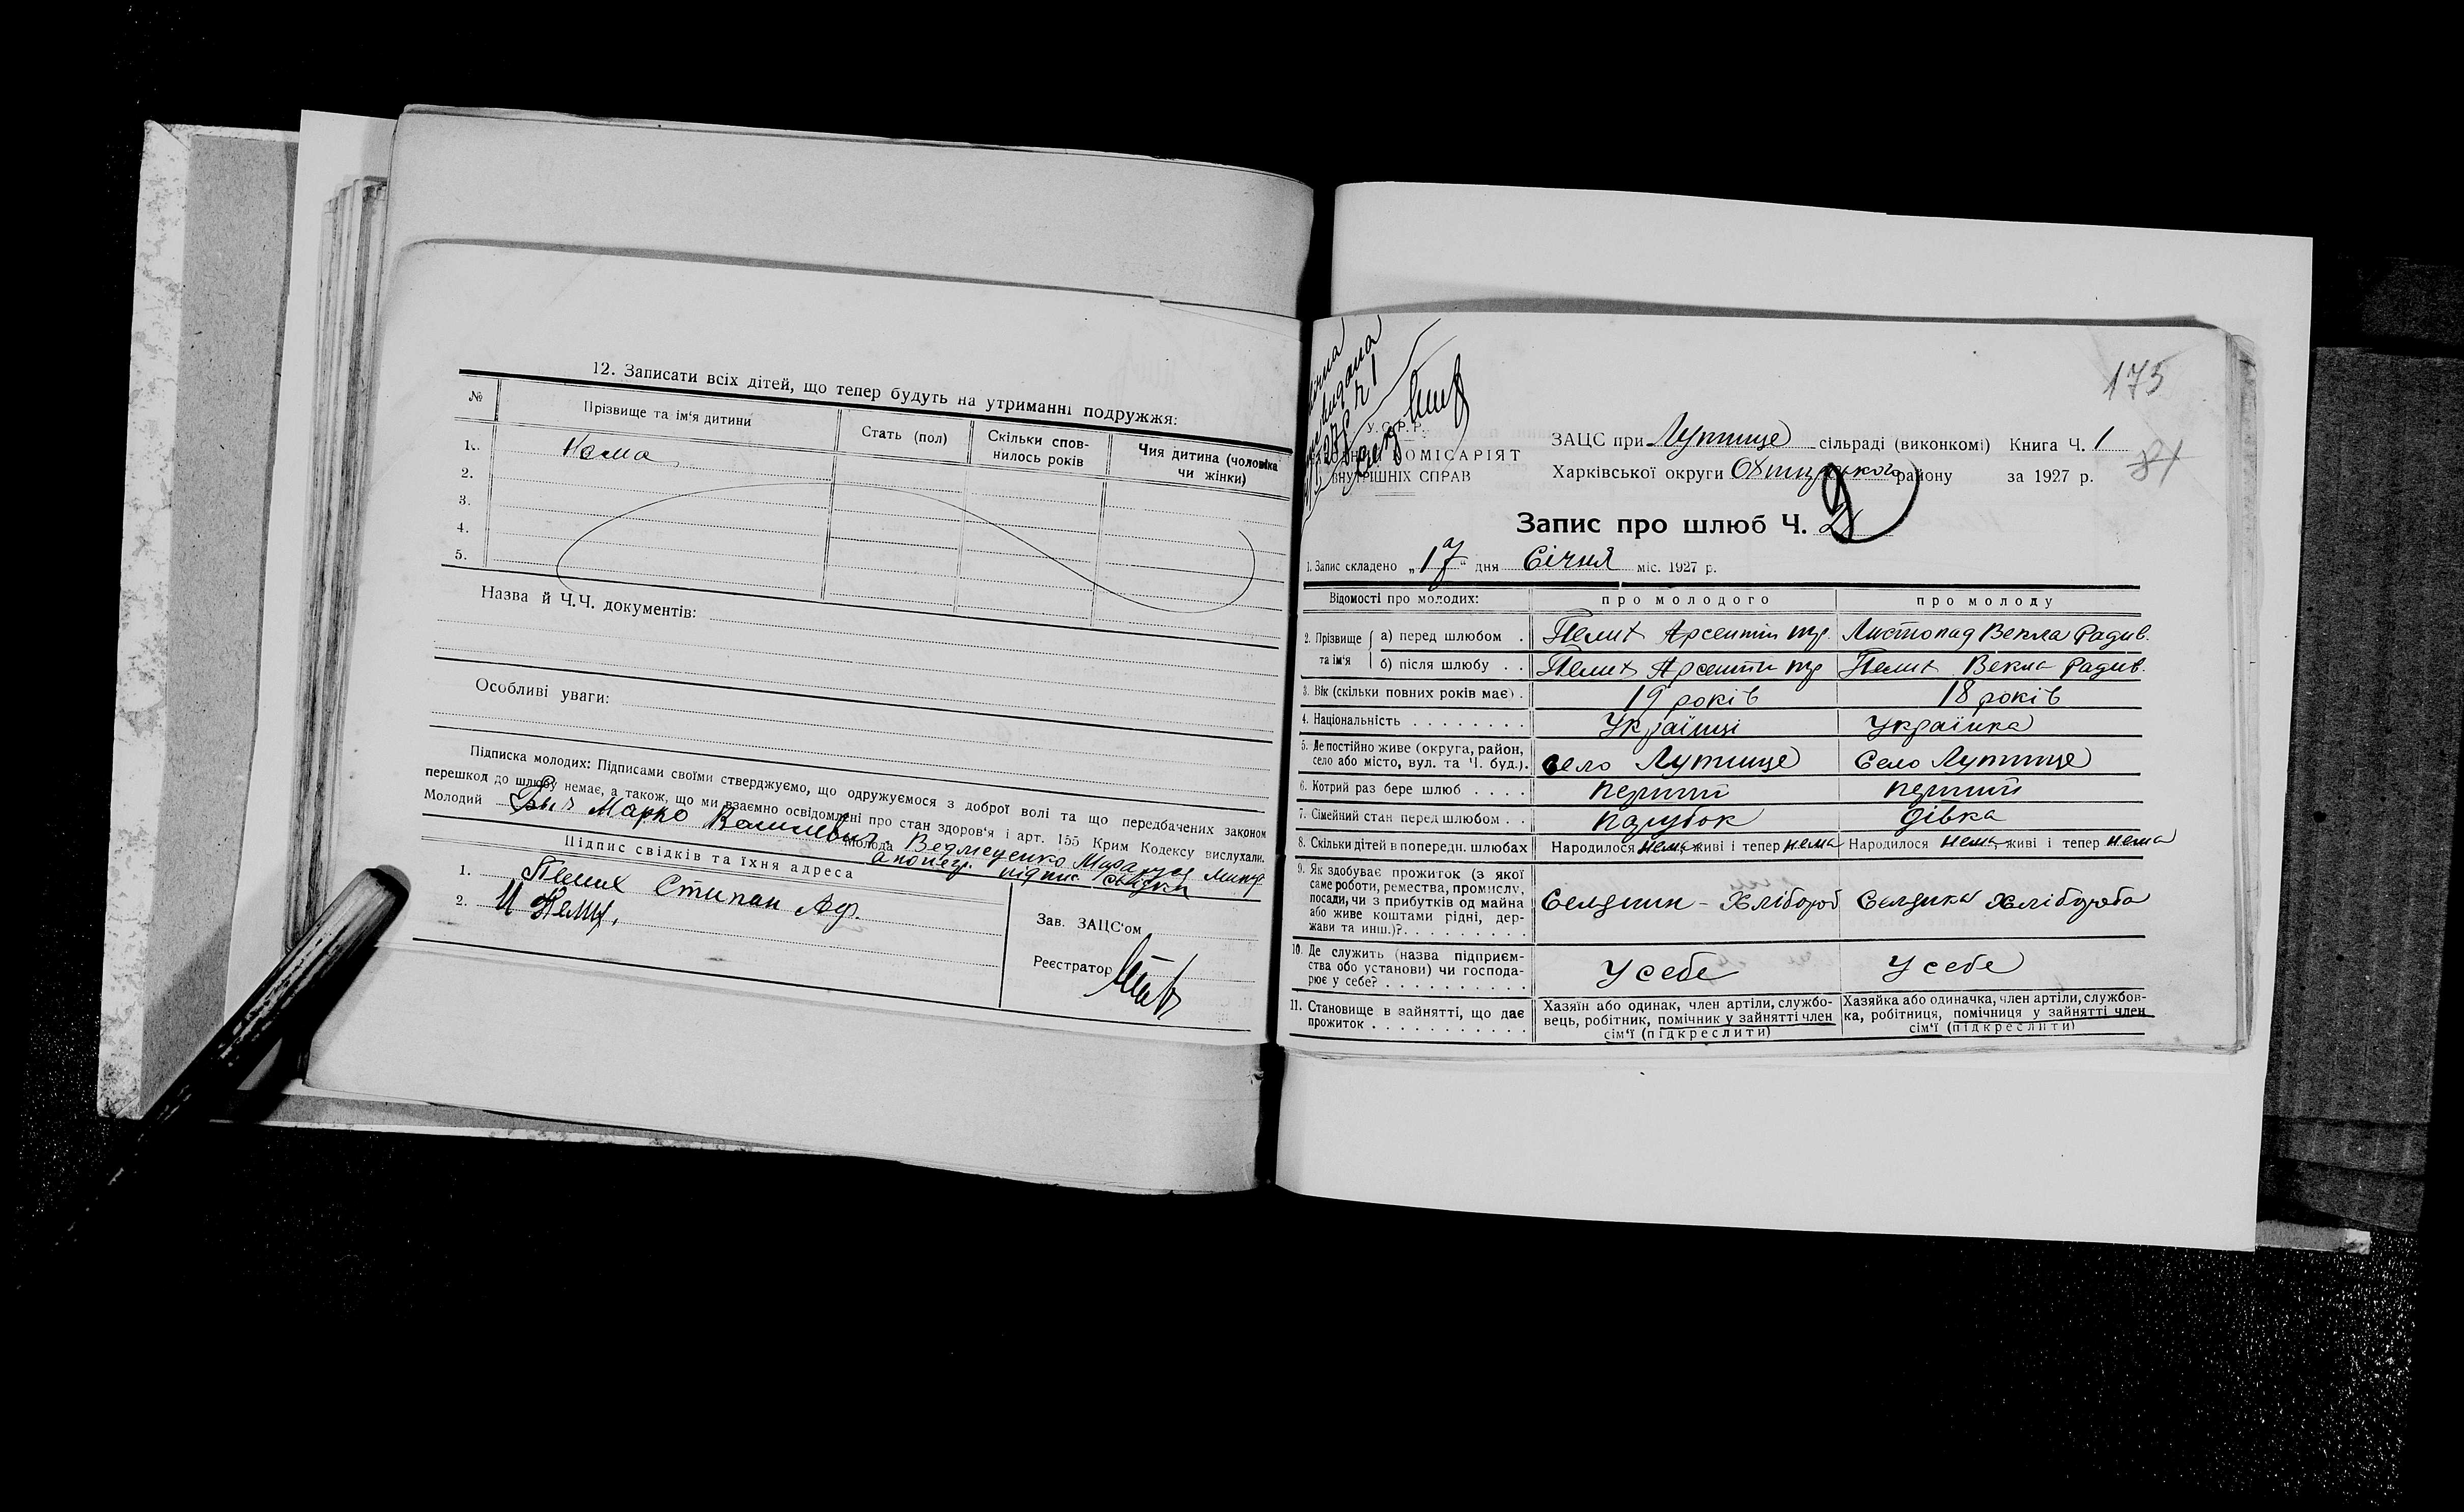 12. Записати всіх дітей, що тепер будуть на утриманні подружжя:
№ Прізвище та ім'я дитини Стать (пол) Скільки спов-нилось років Чия дитина (чоловіка чи жінки)
1. Нема
2.
3.
4.
5.
Назва й Ч.Ч. документів:
Особливі уваги:
Підписка молодих: Підписами своїми стверджуємо, що одружуємося з доброї волі та що передбачених законом
перешкод до шлюбу немає, а також, що ми взаємно освідомлені про стан здоров'я і арт. 155 Крим Кодексу вислухали.
Молодий Марко Молода Ведмеденко
підпис
Підпис свідків та їхня адреса
1. Пелих Степан Аф.
2. И Пелих
Зав. ЗАЦС'ом
Реєстратор
175
У.С.Р.Р.
ОМІСАРІЯТ
ВНУТРІШНІХ СПРАВ
ЗАЦС при Лутище сільраді (виконкомі) Книга Ч. 1
Харківської округи Охтирського району за 1927 р.
81
Запис про шлюб Ч. 2
1. Запис складено „17" дня Січня міс. 1927 р.
Відомості про молодих: про молодого про молоду
2. Прізвище та ім'я а) перед шлюбом . Пелих Арсентій Листопад Векла Радив.
б) після шлюбу . . Пелих Арсентій Пелих Векла Радив.
3. Вік (скільки повних років має) . 19 років 18 років
4. Національність . . . . . . . . Українці Українка
5. Де постійно живе (округа, район,
село або місто, вул. та Ч. буд.). село Лутище Село Лутище
6. Котрий раз бере шлюб . . . . перший перший
7. Сімейний стан перед шлюбом . . парубок дівка
8. Скільки дітей в попередн. шлюбах Народилося нема живі і тепер нема Народилося нема живі і тепер нема
9. Як здобуває прожиток (з якої
саме роботи, ремества, промислу,
посади, чи з прибутків од майна
або живе коштами рідні, дер-
жави та инш.)?. . . . . . . . . Селянин - Хлібороб Селянка Хліборобка
10. Де служить (назва підприєм-
ства або установи) чи господа-
рює у себе? . . . . . . . . . . У себе У себе
11. Становище в зайнятті, що дає
прожиток . . . . . . . . . . . .
Хазяїн або одинак, член артіли, службо-
вець, робітник, помічник у зайнятті член
сім'ї (підкреслити)
Хазяйка або одиначка, член артіли, службов-
ка, робітниця, помічниця у зайнятті член
сім'ї (підкреслити)